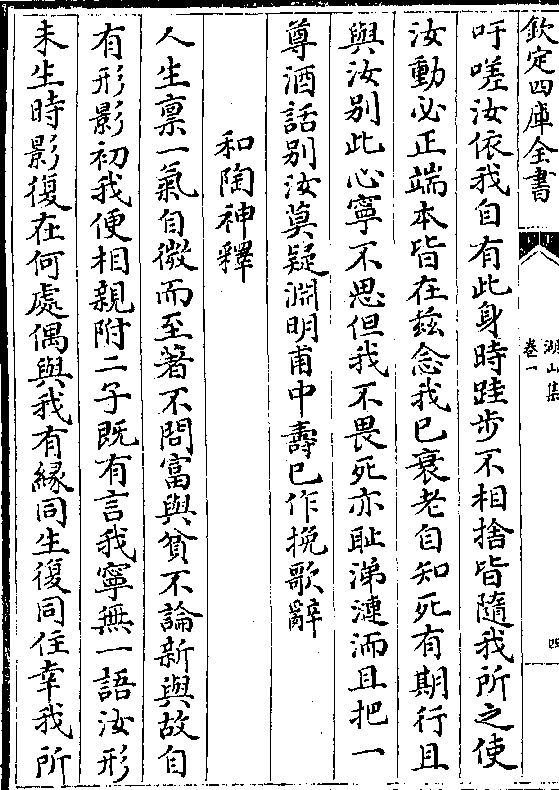 欽定四庫全書
湖山集
卷一
四
吁嗟汝依我自有此身時跬步不相捨皆隨我所之使
汝動必正端本皆在兹念我已衰老自知死有期行且
與汝别此心寧不思但我不畏死亦耻涕漣洏且把一
尊酒話别汝莫疑淵明甫中壽已作挽歌辭
和陶神釋
人生禀一氣自微而至著不問富與貧不論新與故自
有形影初我便相親附二子既有言我寧無一語汝形
未生時影復在何處偶與我有緣同生復同住幸我所